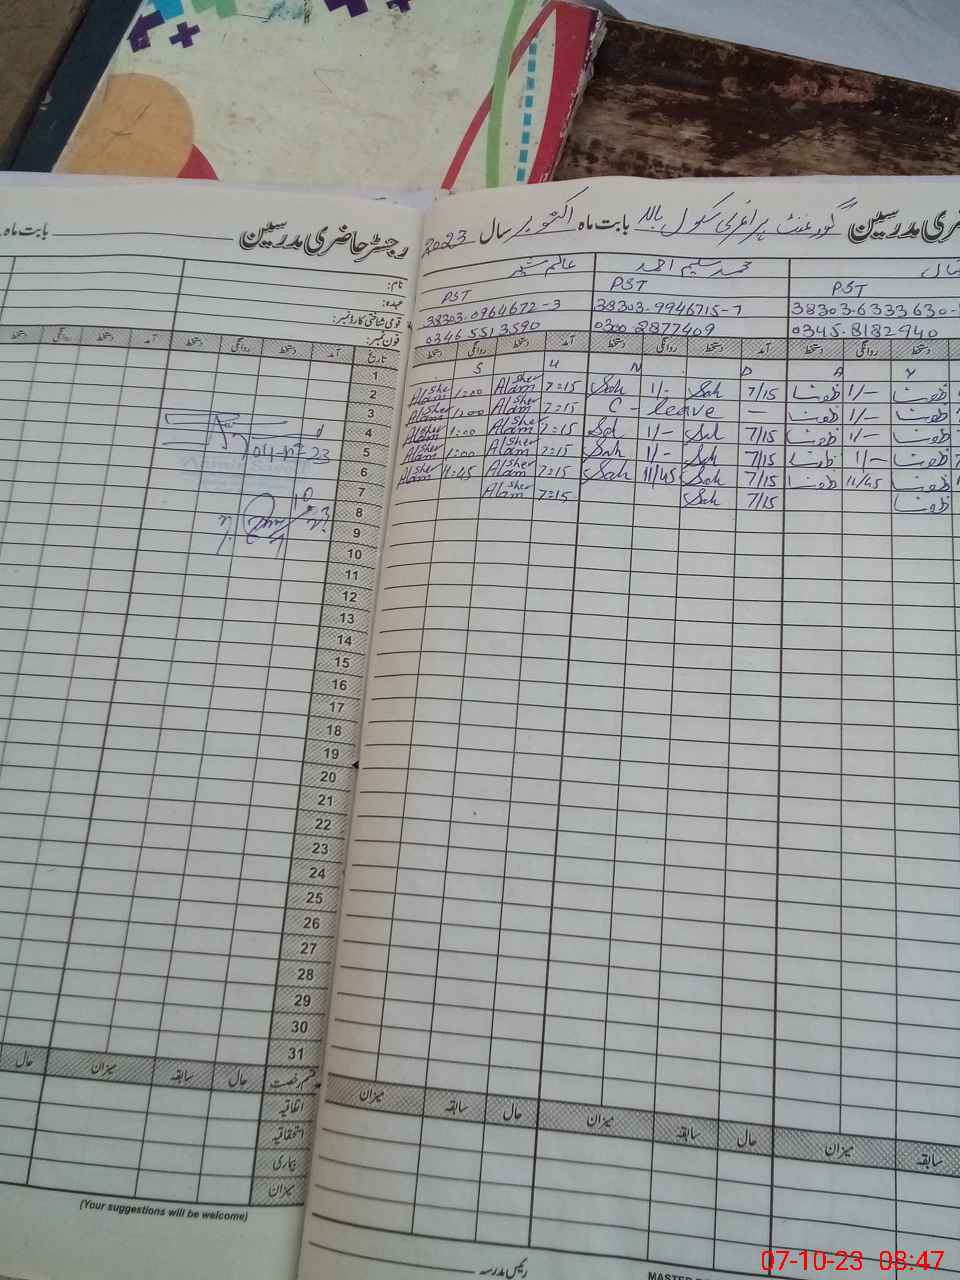 رجسٹر حاضری مدرسین
بابت ماہ
نام:
عہدہ:
قومی شناختی کارڈ نمبر:
فون نمبر:
تاریخ آمد دستخط روانگی دستخط آمد دستخط روانگی دستخط
1
2
3
4
5
6
7
8
9
10
11
12
13
14
15
16
17
18
19
20
21
22
23
24
25
26
27
28
29
30
31
قسم رخصت حال سابقہ میزان حال
اتفاقیہ
استحقاقیہ
بیماری
میزان
(Your suggestions will be welcome)
حاضری مدرسین گورنمنٹ پرائمری سکول بالا بابت ماہ اکتوبر سال 2023
محمد سلیم احمد عالم شیر
PST PST PST
38303-0964672-3 38303-9946715-7 38303-6333630-
0346 5513590 0300 2877409 0345-8182940
دستخط روانگی دستخط آمد دستخط روانگی دستخط آمد دستخط روانگی دستخط
S U N D A Y
Alsher Alam 1:00 Alsher Alam 7:15 Sah 1/- Sah 7/15 1/-
Alsher Alam 1:00 Alsher Alam 7:15 C - leave - 1/-
Alsher Alam 1:00 Alsher Alam 7:15 Sah 1/- Sah 7/15 1/-
Alsher Alam 1:00 Alsher Alam 7:15 Sah 1/- Sah 7/15 1/-
Alsher Alam 11:45 Alsher Alam 7:15 Sah 11/45 Sah 7/15 11/45
Alsher Alam 7:15 Sah 7/15
میزان سابقہ حال میزان سابقہ حال میزان سابقہ
رئیس مدرسہ
07-10-23 08:47